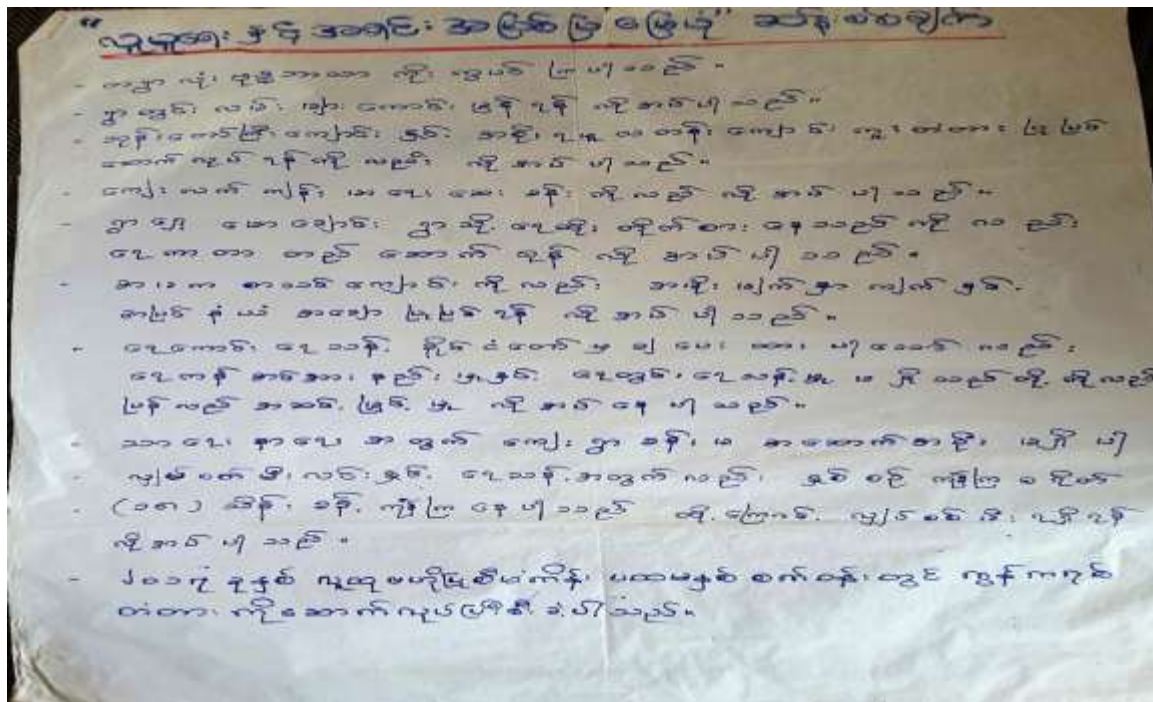 "လူမှုရေး နှင့် အရင်း အမြစ် ပြ မြေပုံ" ဆန်းစစ်ချက်
- တစ်ရွာလုံး ဗုဒ္ဓဘာသာ ကိုးကွယ် ကြ ပါ သည်။
- ရွာတွင်း လမ်း များ ကောင်း မွန် ရန် လို အပ် ပါ သည်။
- ဘုန်းတော်ကြီး ကျောင်း နှင့် အစိုး ရ မူ လ တန်း ကျောင်း ကူး တံတား ပြု ပြင်
ဆောက် လုပ် ရန် ကို လည်း လို အပ် ပါ သည်။
- ကျေး လက် ကျန်း မာ ရေး ဆေး ခန်း ကို လည်း လို အပ် ပါ သည်။
- ရွာ ရှေ့ ချောင်း ရွာ သို့ ရေ တိုး တိုက် စား နေ သည် ကို လ ည်း
ရေ ကာ တာ တည် ဆောက် ရန် လို အပ် ပါ သည်။
- အ ကျောင်း ကို လည်း အမိုး ဖျက် မှာ ကျက် နှင့်
အပြင် နံ ယံ အချော ပြု ပြင် ရန် လို အပ် ပါ သည်။
- ရေကောင်း ရေ သန့် နိုင် ငံ တော် မှ ချ ပေး ထား ပါ သော် လည်း
ရေ ကန် အင်အား နည်း မှု နှင့် ရေတွင်း ရေ သန့် မှု မ ရှိ သည် တို့ ကို လည်း
ပြန် လည် အဆင့် မြှင့် မှု လို အပ် နေ ပါ သည်။
- သာ ရေး နာ ရေး အ တွက် ကျေး ရွာ ခန်း မ အဆောက် အဦး မရှိ ပါ
- လျှပ် စစ် မီး လင်း နှင့် ရေ သန့် အတွက် လည်း
- (၁၈) သိန်း ခန့် ကျန် ကြ နေ ပါ သည် ထို့ ကြောင့် လျှပ် စစ် မီး ရရှိ ရန်
လို အပ် ပါ သည်။
- ၂၀၁၇ ခုနှစ် လူထုဗဟိုပြုစီမံကိန်း ပထမနှစ် စက်ဝန်း တွင် ကွန်ကရစ်
တံတား ကို ဆောက်လုပ်ပြီးစီး ခဲ့ပါ သည်။